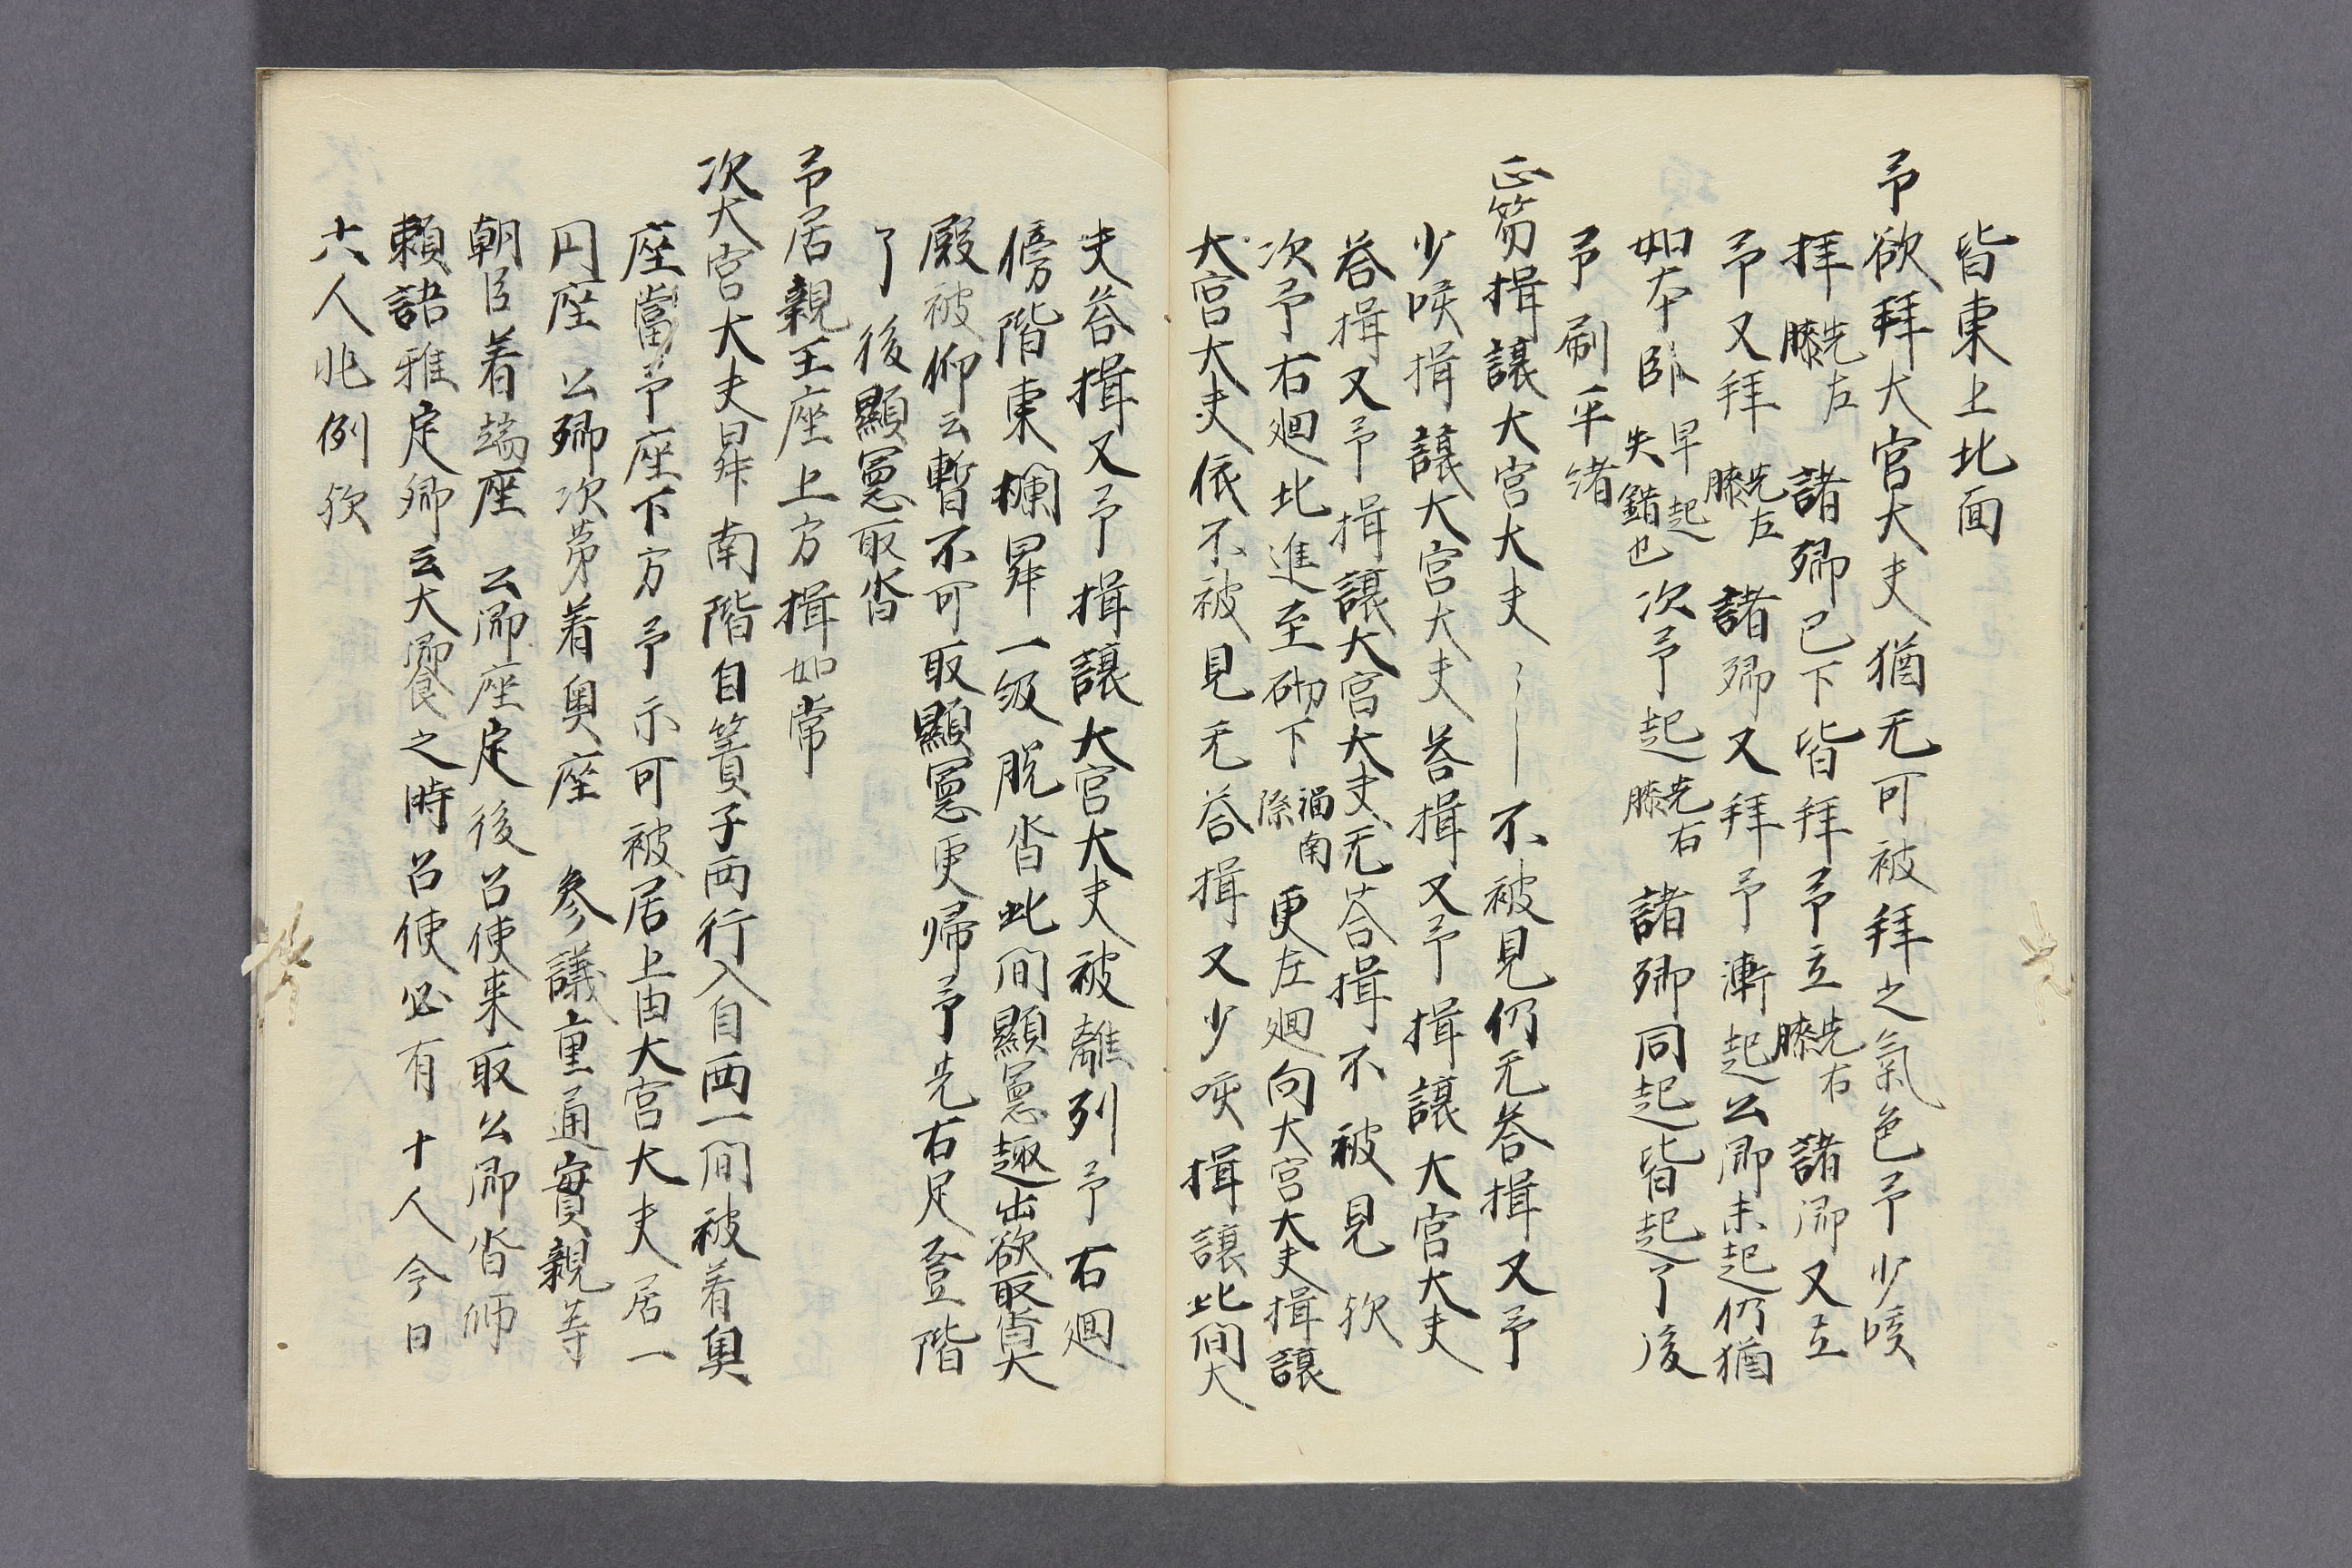 皆東上北面
予欲拜大宮大夫猶无可被拜之氣色予少咳
拝先左膝諸卿已下皆拜予立先右膝諸卿又立
予又拜先左膝諸卿又拜予漸起公卿未起仍猶
如本卧早起失錯也次予起先右膝諸卿同起皆起了後
予刷平緒
正笏揖讓大宮大夫〻〻不被見仍无荅揖又予
少咳揖讓大宮大夫荅揖又予揖讓大宮大夫
荅揖又予揖讓大宮大夫无荅揖不被見欤
次予右廻北進至砌下溜南際更左廻向大宮大夫揖讓
大宮大夫依不被見无荅揖又少咳揖讓此間大
夫荅揖又予揖讓大宮大夫被離列予右廻
傍階東欄昇一級脱沓此間顯憲趣出欲取資大
殿被仰云暫不可取顯憲更歸予先右足登階
了後顯憲取沓
予居親王座上方揖如常
次大宮大夫昇南階自簀子西行入自西一間被着奥
座當予座下方予示可被居上由大宮大夫居一
円座公卿次第着奥座參議重通實親等
朝臣着端座公卿座定後召使来取公卿沓師
頼語雅定卿云大饗之時召使必有十人今日
六人非例欤